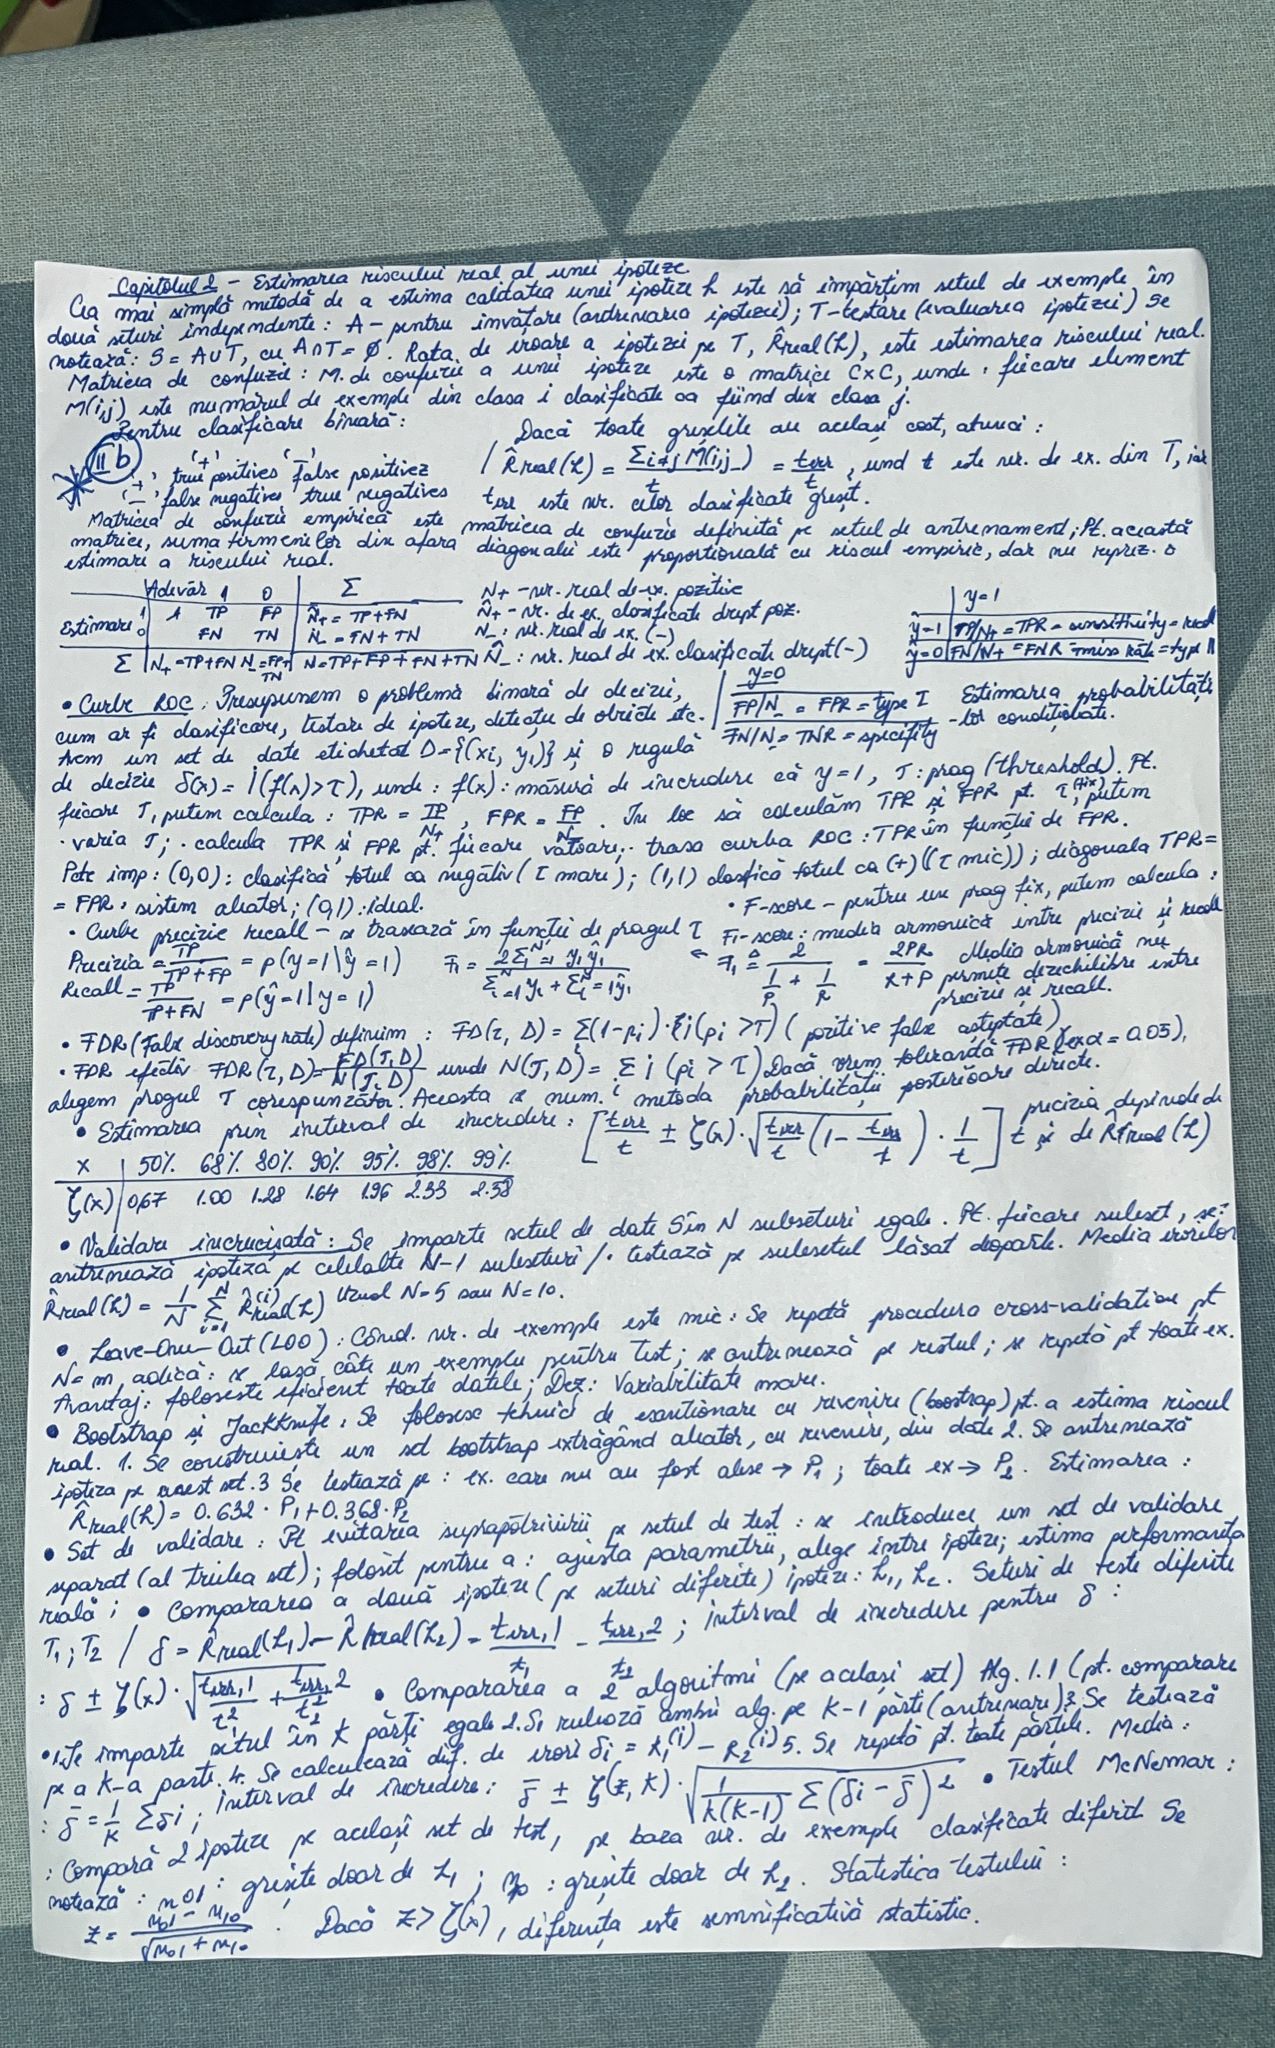 Capitolul 2 - Estimarea riscului real al unei ipoteze
Cea mai simplă metodă de a estima calitatea unei ipoteze h este să împărțim setul de exemple în
două seturi independente: A - pentru învățare (antrenarea ipotezei); T - testare (evaluarea ipotezei) Se
notează: S = A∪T, cu A∩T = ∅. Rata de eroare a ipotezei pe T, R̂real(h), este estimarea riscului real.
Matricea de confuzie: M. de confuzie a unei ipoteze este o matrice C×C, unde fiecare element
M(i,j) este numărul de exemple din clasa i clasificate ca fiind din clasa j.
Pentru clasificare binară: Dacă toate greșelile au același cost, atunci:
II b
'+' '-'
'+' true positives false positives / R̂real(h) = Σi≠j M(i,j) / t = terr / t, und t este nr. de ex. din T, iar
'-' false negatives true negatives terr este nr. celor clasificate greșit.
Matricea de confuzie empirică este matricea de confuzie definită pe setul de antrenament; Pt. această
matrice, suma termenilor din afara diagonalei este proporțională cu riscul empiric, dar nu reprez. o
estimare a riscului real.
Adevăr 1 0 Σ N+ - nr. real de ex. pozitive y=1
Estimare 1 TP FP N̂+ = TP+FN N̂+ - nr. de ex. clasificate drept poz. ŷ=1 TP/N+ = TPR = sensitivity = recall
0 FN TN N̂- = FN+TN N_: nr. real de ex. (-) ŷ=0 FN/N+ = FNR = miss rate = type II
Σ N+ = TP+FN N_ = FP+TN N = TP+FP+FN+TN N̂_: nr. real de ex. clasificate drept (-)
y=0
FP/N_ = FPR = type I Estimarea probabilități-
FN/N_ = TNR = specifity lor condiționate.
• Curbe ROC. Presupunem o problemă binară de decizie,
cum ar fi clasificare, testare de ipoteze, detecție de obiecte etc.
Avem un set de date etichetat D={(xi, yi)} și o regulă
de decizie δ(x) = I(f(x)>τ), unde: f(x): măsură de încredere că y=1, τ: prag (threshold). Pt.
fiecare τ, putem calcula: TPR = TP/N+, FPR = FP/N-. În loc să calculăm TPR și FPR pt. τ (fix), putem
· varia τ; · calcula TPR și FPR pt. fiecare valoare; · trasa curba ROC: TPR în funcție de FPR.
Pcte imp: (0,0): clasifică totul ca negativ (τ mare); (1,1) clasifică totul ca (+) (τ mic)); diagonala TPR=
= FPR, sistem aleator; (0,1): ideal. • F-score - pentru un prag fix, putem calcula:
• Curbe precizie recall - se trasează în funcție de pragul τ F1-score: media armonică între precizie și recall
Precizia = TP / TP+FP = p(y=1|ŷ=1) F1 = 2Σᴺi=1 yiŷi / Σᴺi=1 yi + Σᴺi=1 ŷi ← F1 ≜ 2 / (1/P + 1/R) = 2PR / R+P Media armonică nu
Recall = TP / TP+FN = p(ŷ=1|y=1) permite dezechilibre între
precizie și recall.
• FDR (False discovery rate) definim: FD(τ, D) = Σ(1-pi)·I(pi>τ) (pozitive false așteptate)
• FDR efectiv FDR(τ, D) = FD(τ, D) / N(τ, D) unde N(τ, D) = Σ I (pi > τ) Dacă vrem toleranță FDR (ex α = 0.05),
alegem pragul τ corespunzător. Aceasta se num. metoda probabilității posterioare directe.
• Estimarea prin interval de încredere: [terr/t ± ζ(x)·√(terr/t (1 - terr/t)·1/t)] precizia depinde de
t și de R̂real(h)
x 50% 68% 80% 90% 95% 98% 99%
ζ(x) 0,67 1.00 1.28 1.64 1.96 2.33 2.58
• Validare încrucișată: Se împarte setul de date S în N subseturi egale. Pt. fiecare subset, se:
antrenează ipoteza pe celelalte N-1 subseturi /· testează pe subsetul lăsat deoparte. Media erorilor
R̂real(h) = 1/N Σᴺi=1 R̂(i)real(h) Uzual N=5 sau N=10.
• Leave-One-Out (LOO): Când nr. de exemple este mic: Se repetă procedura cross-validation pt
N=m, adică: se lasă câte un exemplu pentru test; se antrenează pe restul; se repetă pt toate ex.
Avantaj: folosește eficient toate datele; Dez: Variabilitate mare.
• Bootstrap și Jackknife. Se folosesc tehnici de eșantionare cu revenire (boostrap) pt. a estima riscul
real. 1. Se construiește un set bootstrap extrăgând aleator, cu revenire, din date 2. Se antrenează
ipoteza pe acest set. 3 Se testează pe: ex. care nu au fost alese → P1; toate ex → P2. Estimarea:
R̂real(h) = 0.632 · P1 + 0.368 · P2
• Set de validare: Pt evitarea suprapotrivirii pe setul de test: se introduce un set de validare
separat (al treilea set); folosit pentru a: ajusta parametrii, alege între ipoteze; estima performanța
reală; • Compararea a două ipoteze (pe seturi diferite) ipoteze: h1, h2. Seturi de teste diferite
T1; T2 / δ = R̂real(h1) - R̂real(h2) = terr,1 / t1 - terr,2 / t2; interval de încredere pentru δ:
: δ ± ζ(x)·√(terr,1 / t1² + terr,2 / t2²) • Compararea a 2 algoritmi (pe același set) Alg. 1.1 (pt. comparare
• 1. Se împarte setul în K părți egale 2. Se rulează ambii alg. pe K-1 părți (antrenare) 3. Se testează
pe a K-a parte. 4. Se calculează dif. de erori δi = R1(i) - R2(i) 5. Se repetă pt. toate părțile. Media:
: δ̄ = 1/K Σδi; interval de încredere: δ̄ ± ζ(x, K)·√(1/K(K-1) Σ(δi - δ̄)²) • Testul McNemar:
: Compară 2 ipoteze pe același set de test, pe baza nr. de exemple clasificate diferit Se
notează: n01: greșite doar de h1; n10: greșite doar de h2. Statistica testului:
z = n01 - n10 / √n01 + n10. Dacă z > ζ(x), diferența este semnificativă statistic.